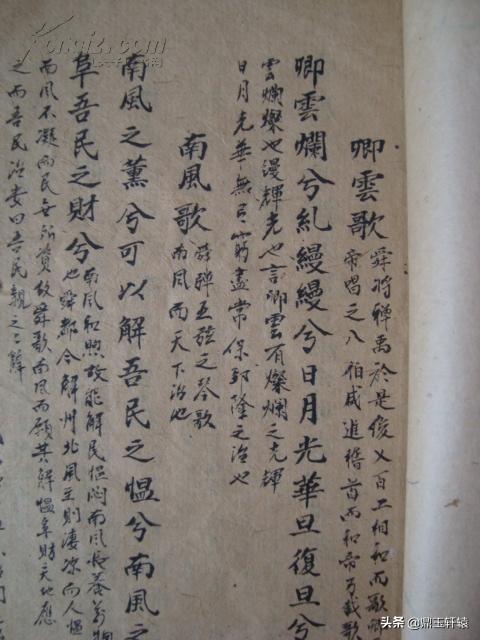 卿雲歌 舜將禅禹於是俊乂百工相和而歌卿
帝唱之八伯咸進稽首而和帝乃載歌
卿雲爛兮糺縵縵兮日月光華旦復旦兮
雲爛燦也漫輝光也言卿雲有燦爛之光輝
日月光華無窮盡常保郅隆之治也
南風歌 舜彈五弦之琴歌
南風而天下治也
南風之薰兮可以解吾民之愠兮南風之
阜吾民之財兮 南風和煦故能解民愠南風長養萬物
也舜都今解州北風至則凄凉而人愠
南風不凝而民無所資故舜歌南風而願其解愠阜財天地應
之而吾民治妻曰吾民親之之辭
头条 @鼎玉轩辕